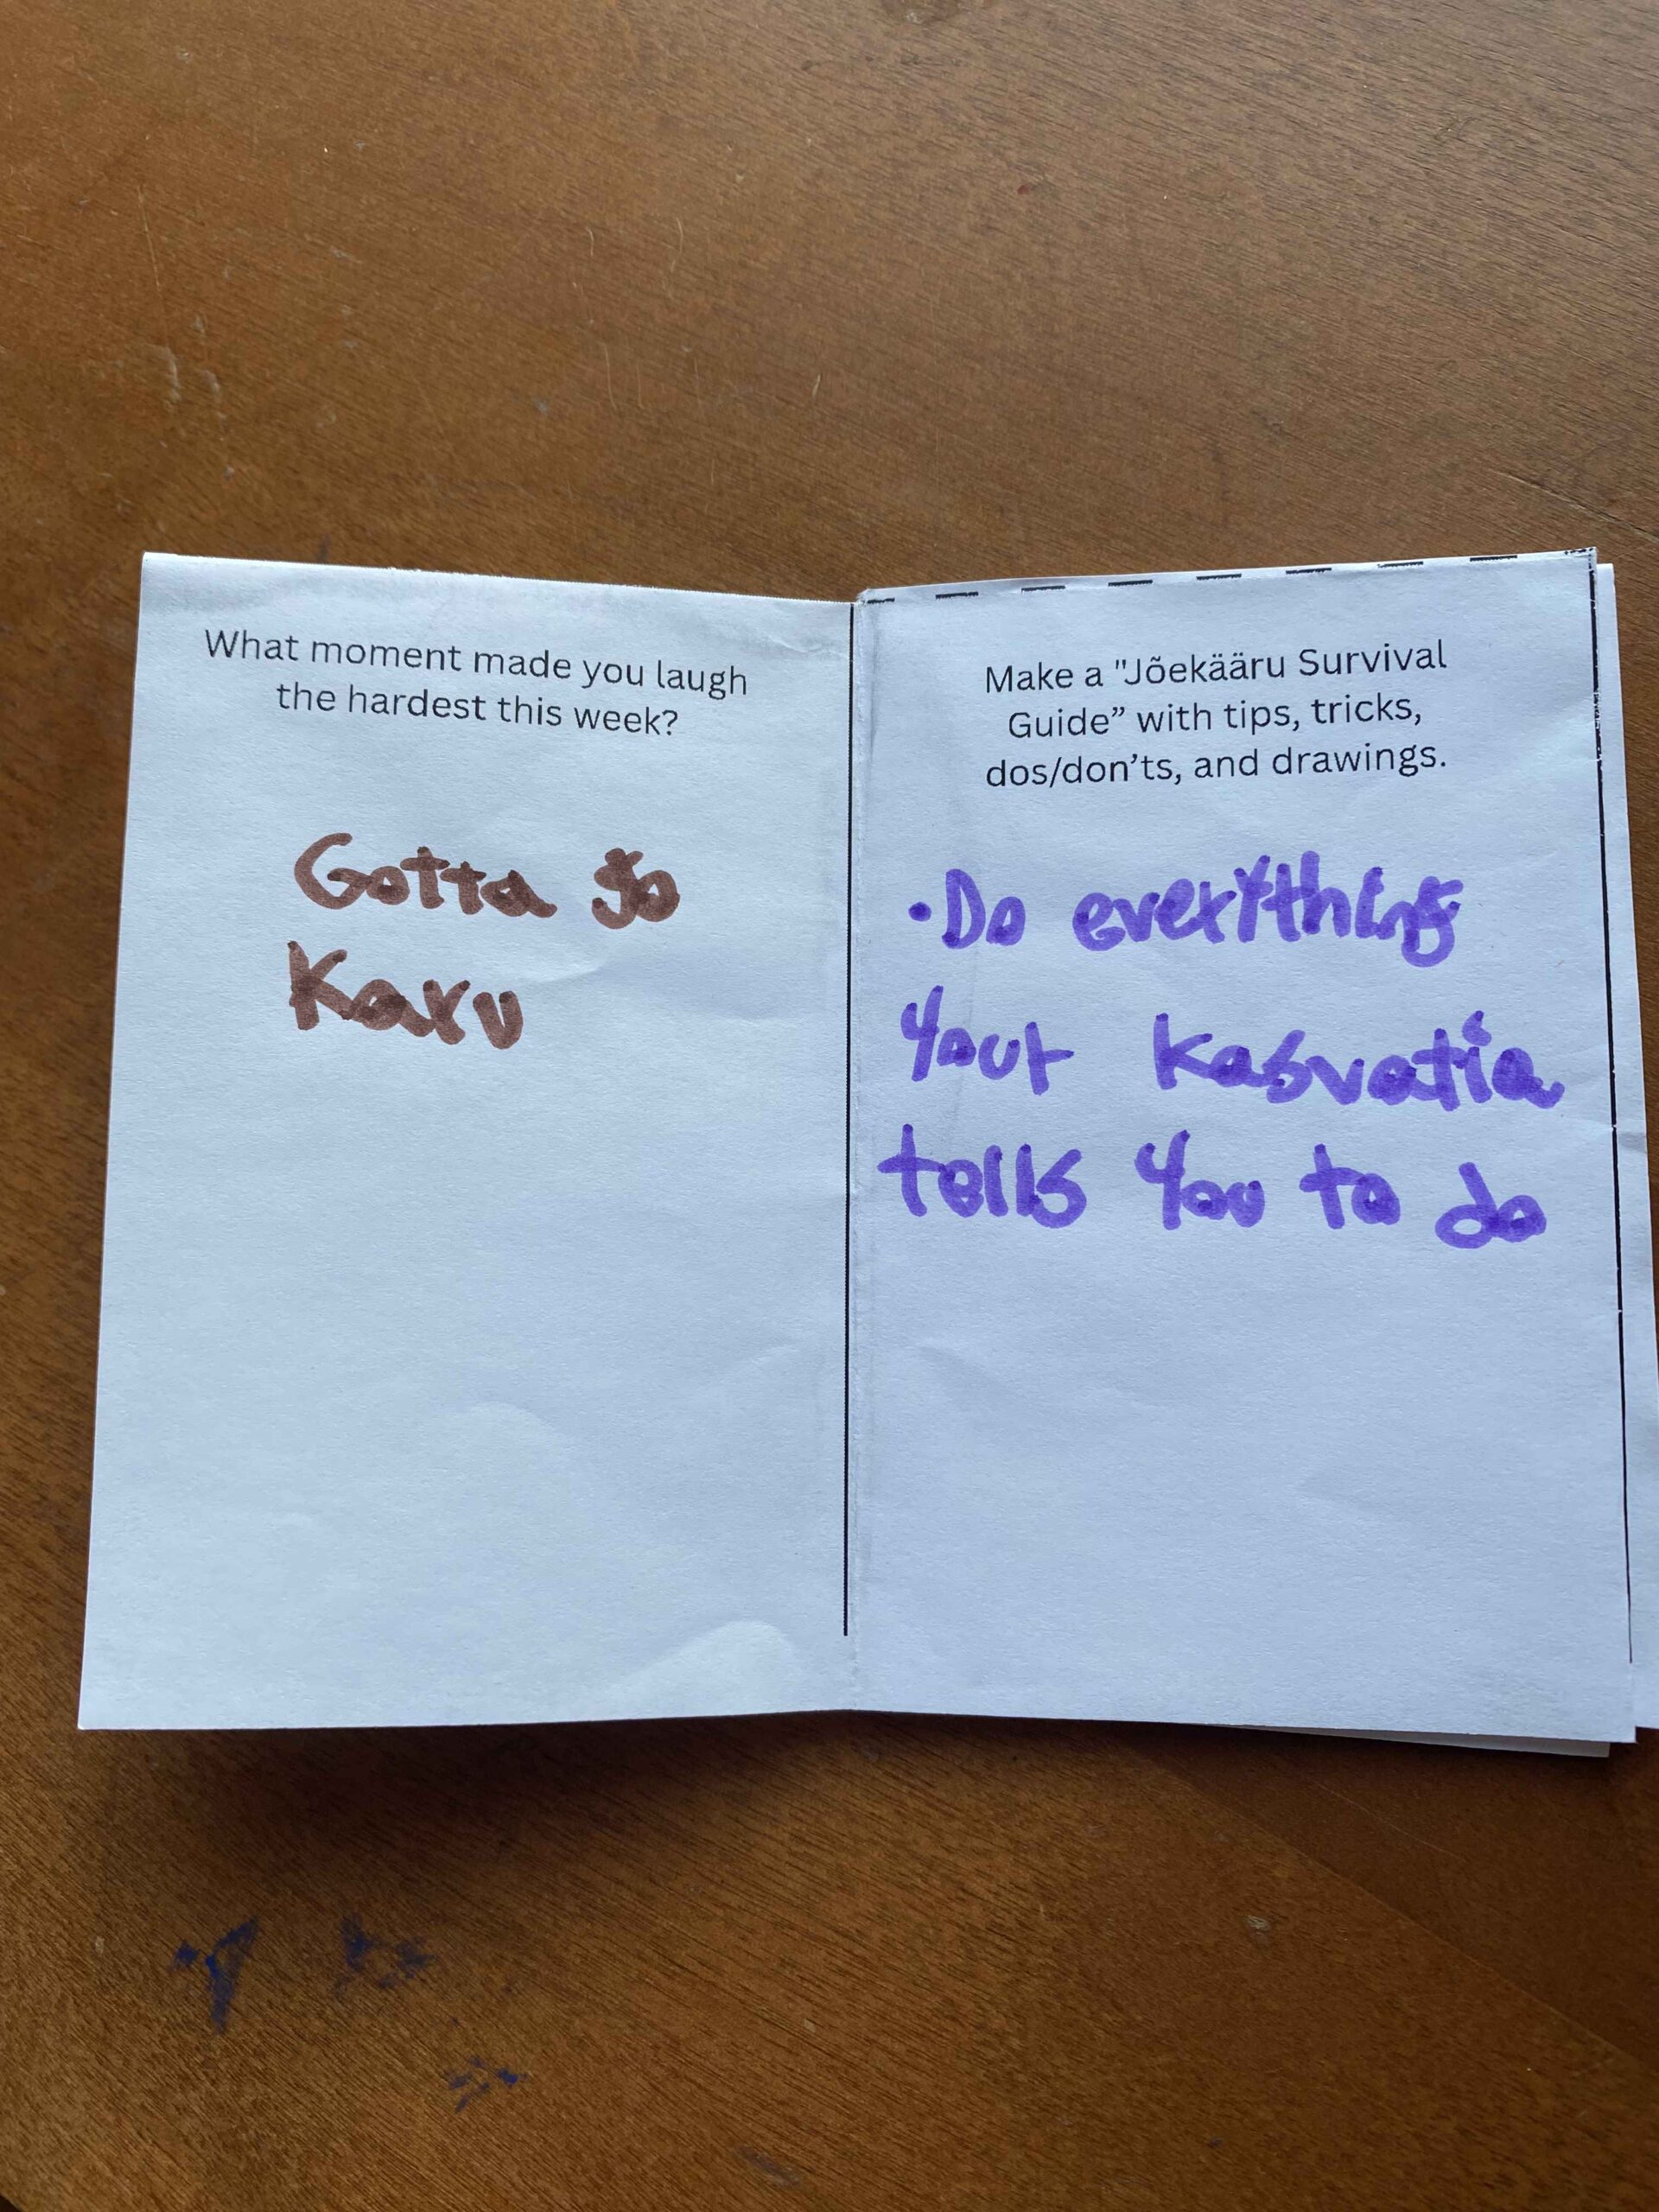 What moment made you laugh
the hardest this week?
Gotta go
Karu
Make a "Jõekääru Survival
Guide” with tips, tricks,
dos/don’ts, and drawings.
•Do everything
your kasvatia
tells you to do